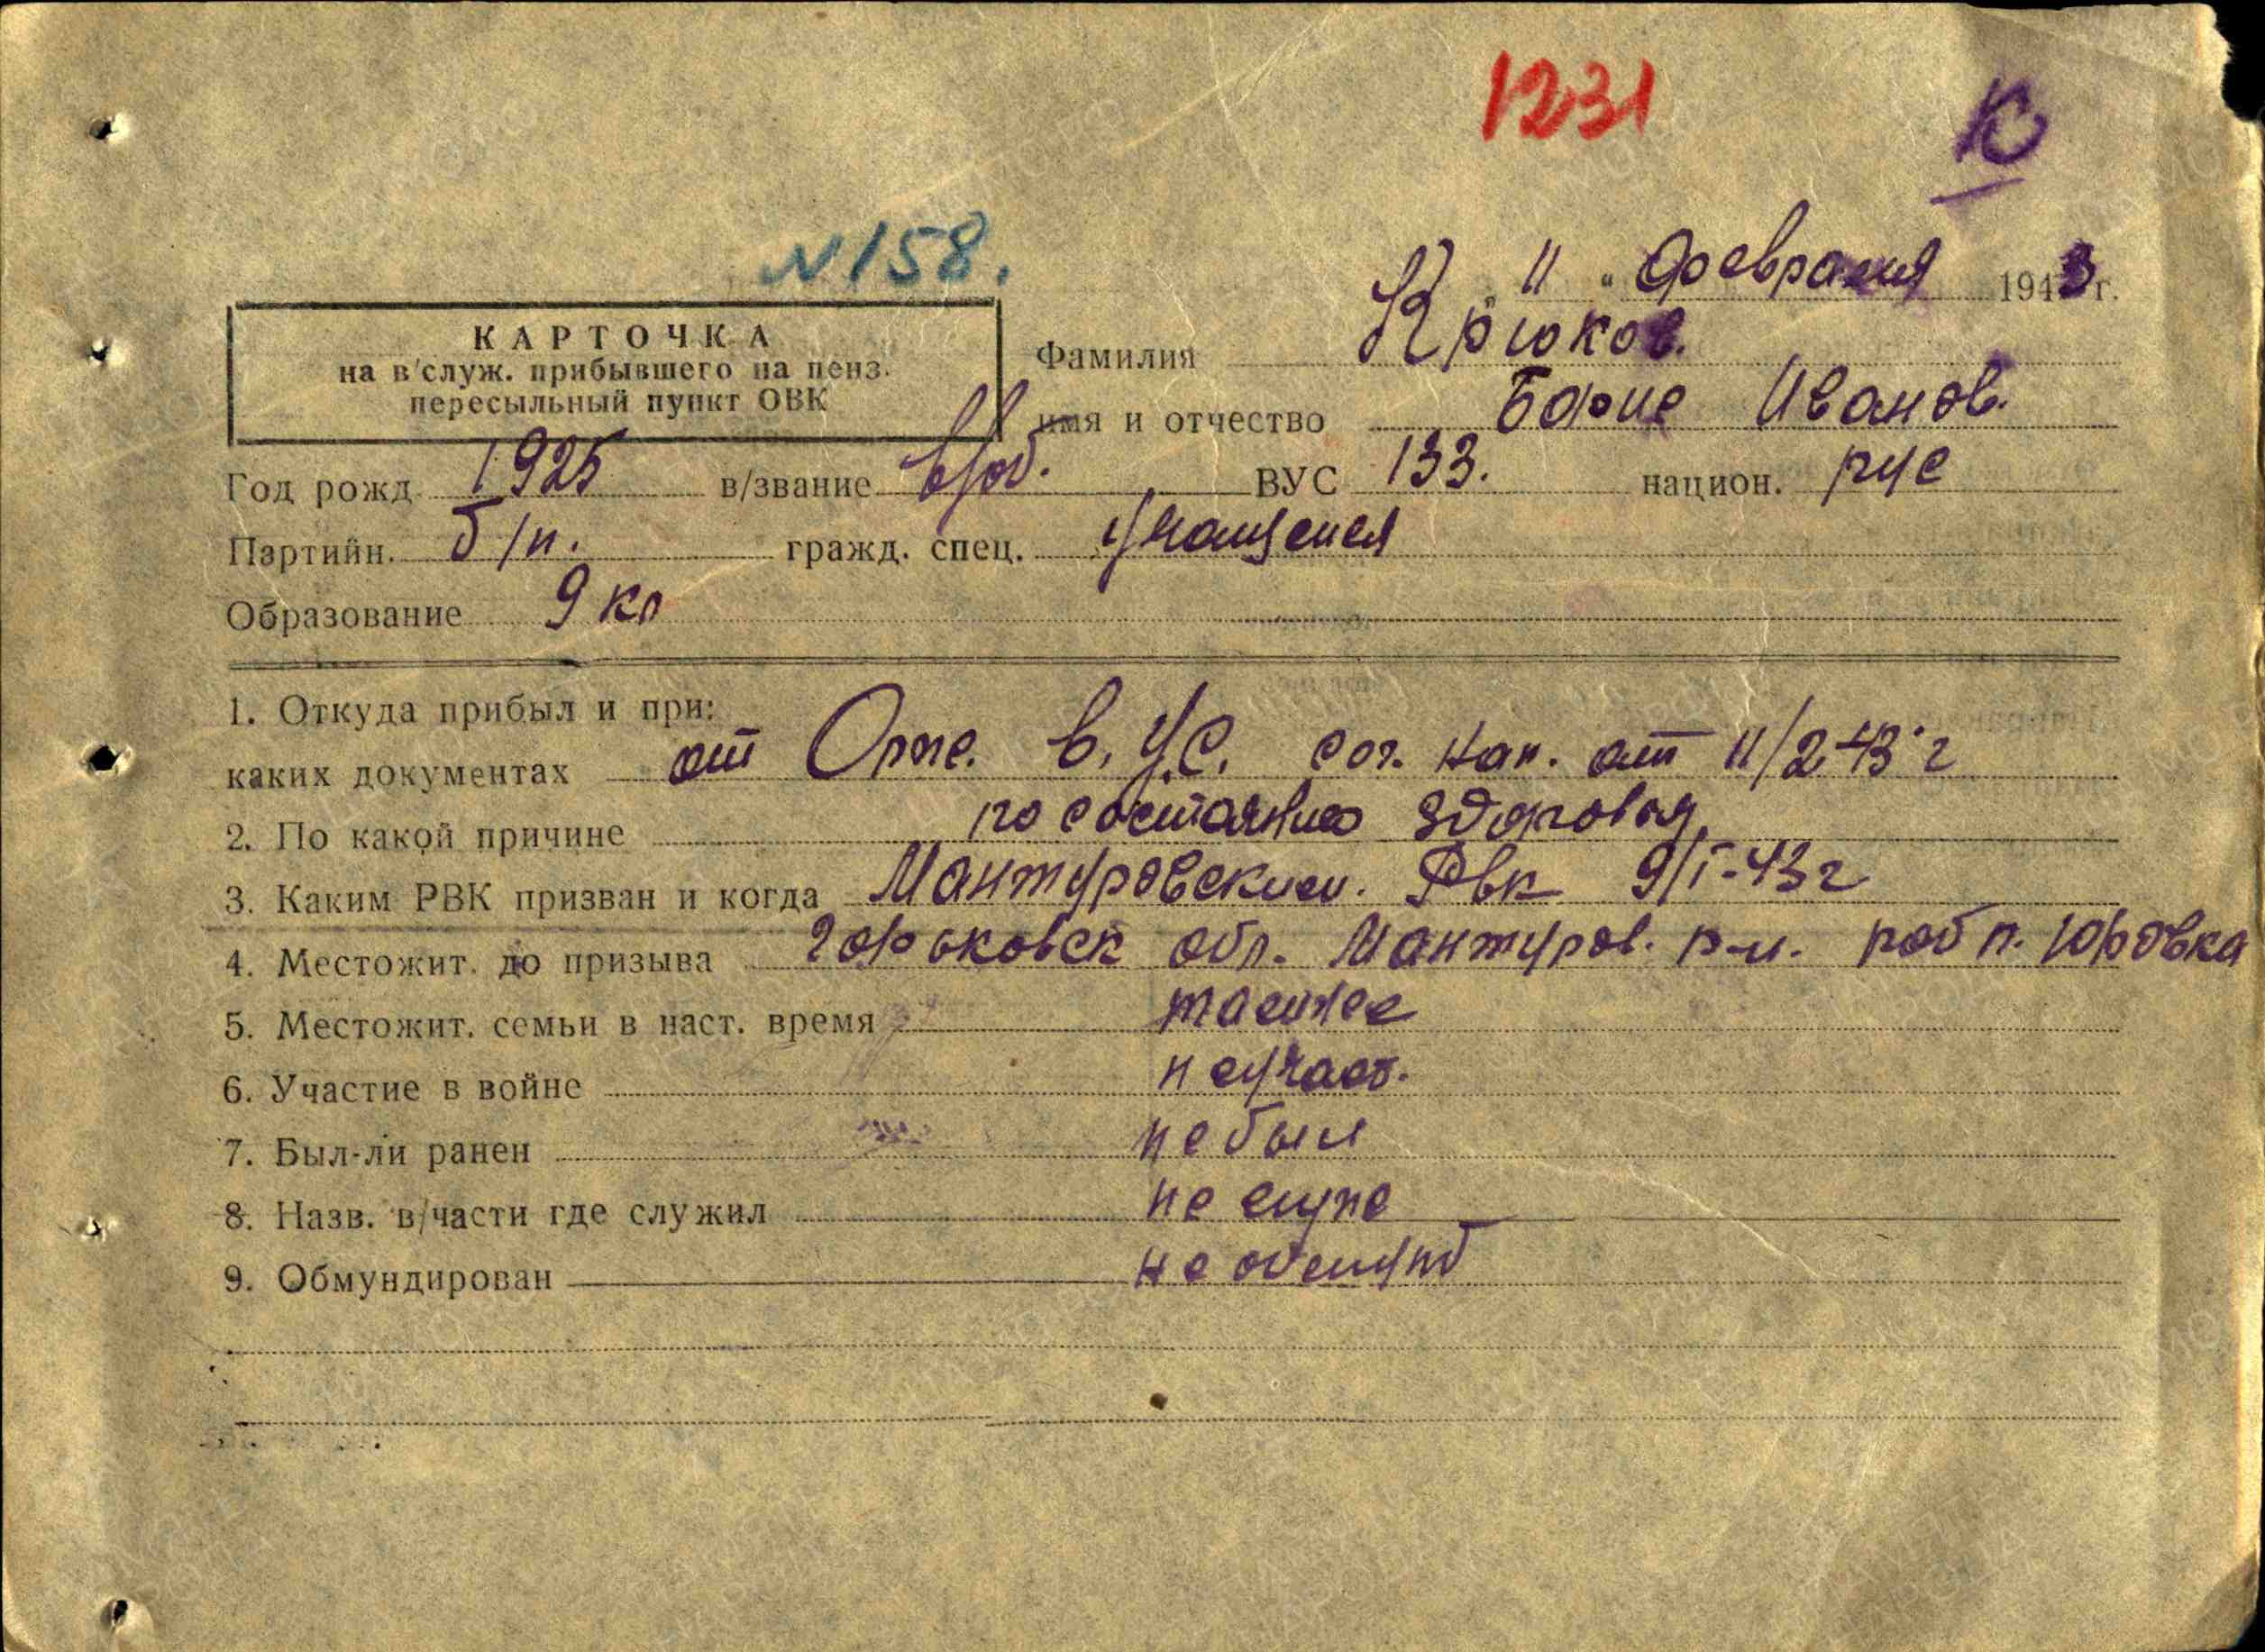 1231
К
N158.
„ 11 " Февраля 1943 г.
КАРТОЧКА
на в/служ. прибывшего на пенз.
пересыльный пункт ОВК
Фамилия Крюков.
имя и отчество Борис Иванов.
Год рожд. 1925 в/звание ВУС 133. национ. рус
Партийн. б/п. гражд. спец. учащейся
Образование 9 кл
1. Откуда прибыл и при:
каких документах от Орже. В.У.С. сог. нап. от 11/2-43 г
2. По какой причине по состоянию здоровья,
3. Каким РВК призван и когда Мантуровским. Рвк 9/I-43 г
4. Местожит. до призыва Горьковск обл. Мантуров. р-н. раб п. Юровка
5. Местожит. семьи в наст. время тамже
6. Участие в войне неучаст.
7. Был-ли ранен не был
8. Назв. в/части где служил не служ
9. Обмундирован не обмунд